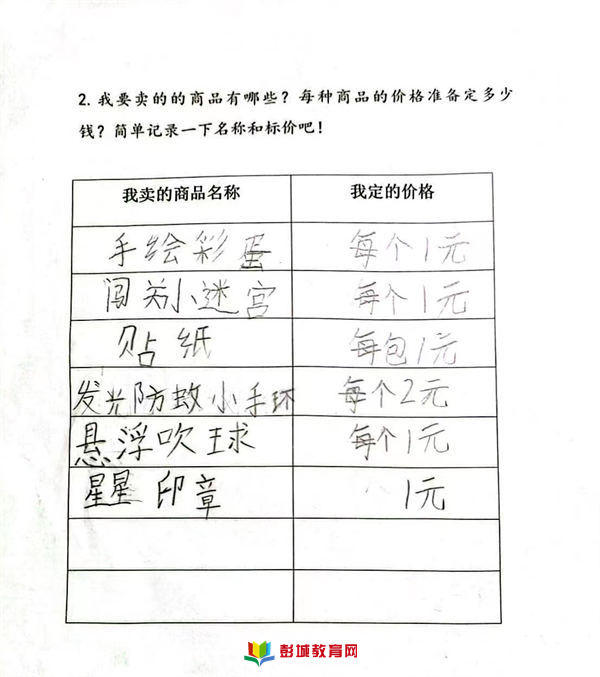 2. 我要卖的的商品有哪些？每种商品的价格准备定多少
钱？简单记录一下名称和标价吧！
我卖的商品名称 我定的价格
手绘彩蛋 每个1元
闯关小迷宫 每个1元
贴纸 每包1元
发光防蚊小手环 每个2元
悬浮吹球 每个1元
星星印章 1元
彭城教育网